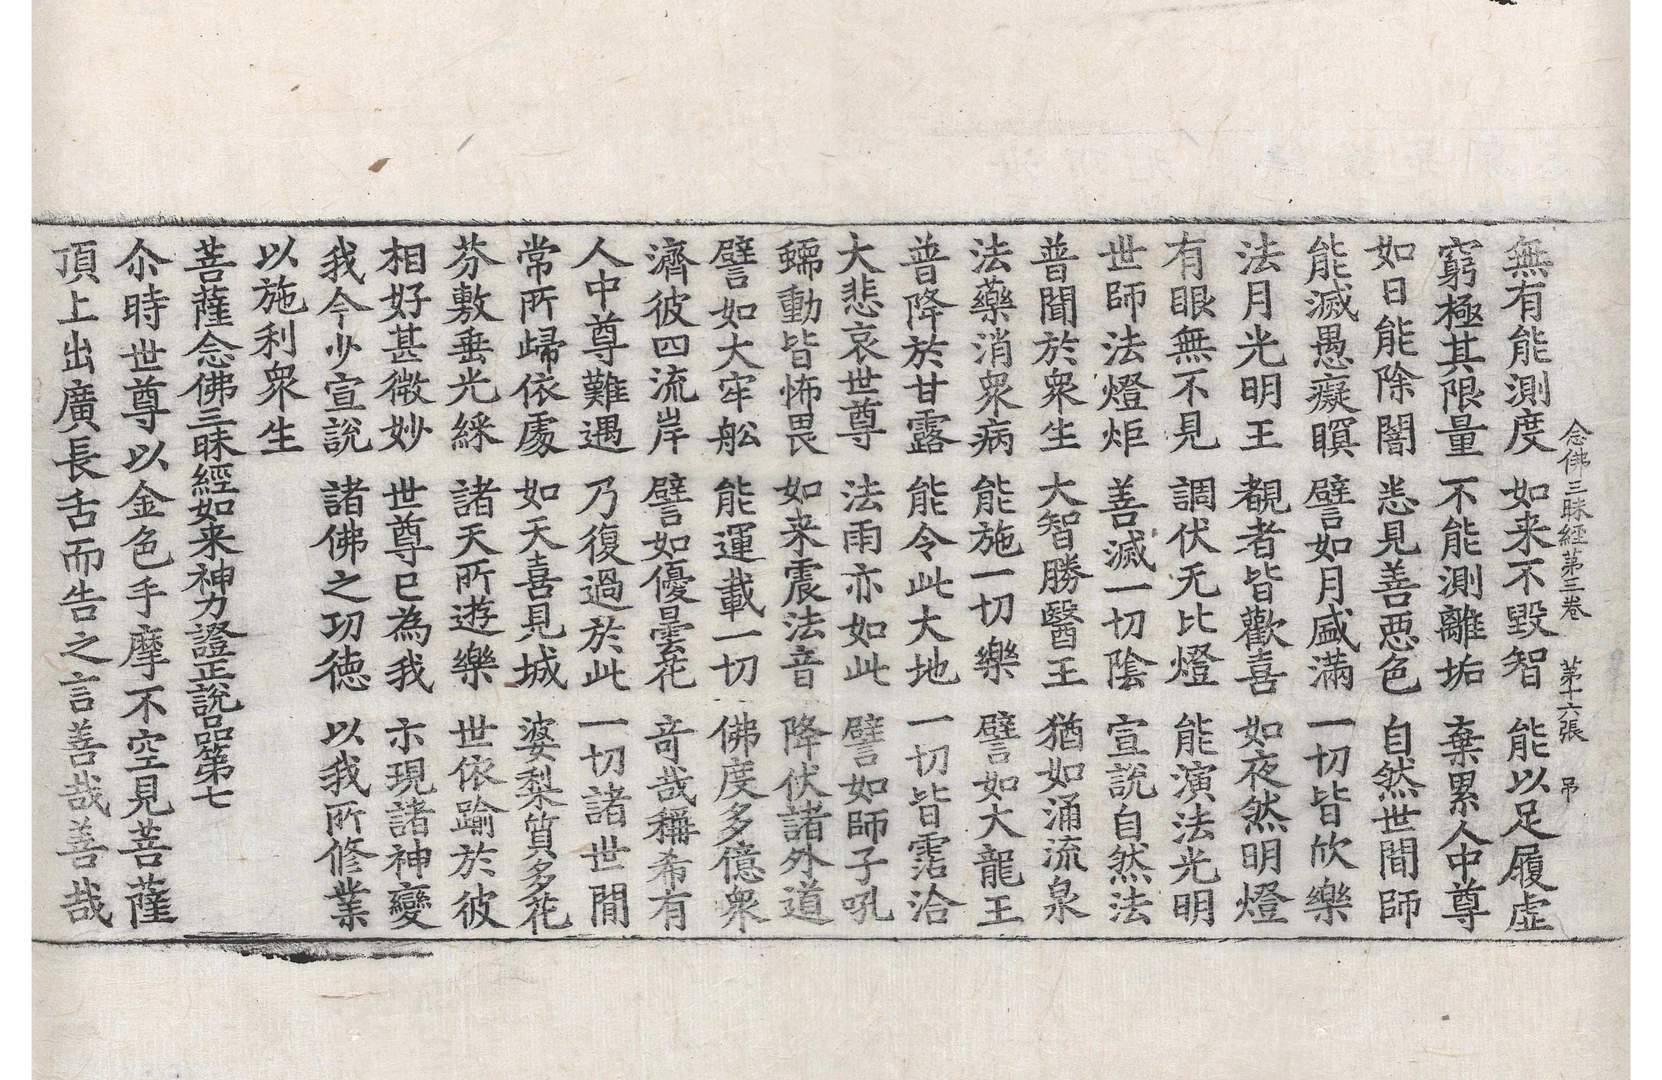 念佛三昧經第三卷 第十六張 吊
無有能測度 如来不毀智 能以足履虛
窮極其限量 不能測離垢 棄累人中尊
如日能除闇 悉見善惡色 自然世間師
能滅愚癡瞑 譬如月盛滿 一切皆欣樂
法月光明王 覩者皆歡喜 如夜然明燈
有眼無不見 調伏无比燈 能演法光明
世師法燈炬 善滅一切陰 宣說自然法
普聞於衆生 大智勝醫王 猶如涌流泉
法藥消衆病 能施一切樂 譬如大龍王
普降於甘露 能令此大地 一切皆霑洽
大悲哀世尊 法雨亦如此 譬如師子吼
蠕動皆怖畏 如来震法音 降伏諸外道
譬如大牢舩 能運載一切 佛度多億衆
濟彼四流岸 譬如優曇花 奇哉稱希有
人中尊難遇 乃復過於此 一切諸世間
常所歸依處 如天喜見城 婆梨質多花
芬敷垂光綵 諸天所遊樂 世依踰於彼
相好甚微妙 世尊已為我 亦現諸神變
我今少宣說 諸佛之功德 以我所修業
以施利衆生
菩薩念佛三昧經如来神力證正說品第七
尒時世尊以金色手摩不空見菩薩
頂上出廣長舌而告之言善哉善哉